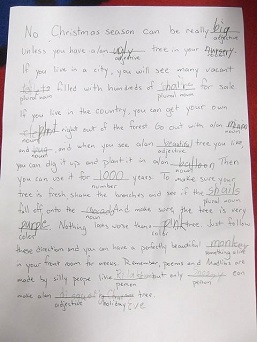 No Christmas season can be really big
adjective
unless you have a/an ugly tree in your nursery
adjective
If you live in a city, you will see many vacant
filled with hundreds of chairs for sale
plural noun plural noun
If you live in the country, you can get your own
right out of the forest. Go out with a/an
noun
and and when you see a/an beautiful tree you like,
noun adjective
you can dig it up and plant it in a/an balloon Then
noun
you can use it for 1000 years. To make sure your
number
tree is fresh shake the branches and see if the
plural noun
fall off onto the And make sure the tree is very
noun
purple. Nothing looks worse than a pink tree. Just follow
color color
these direction and you can have a perfectly beautiful monkey
something alive
in your front room for weeks. Remember, poems and
made by silly people like but only can
person person
make a/an tree.
adjective holiday Eve